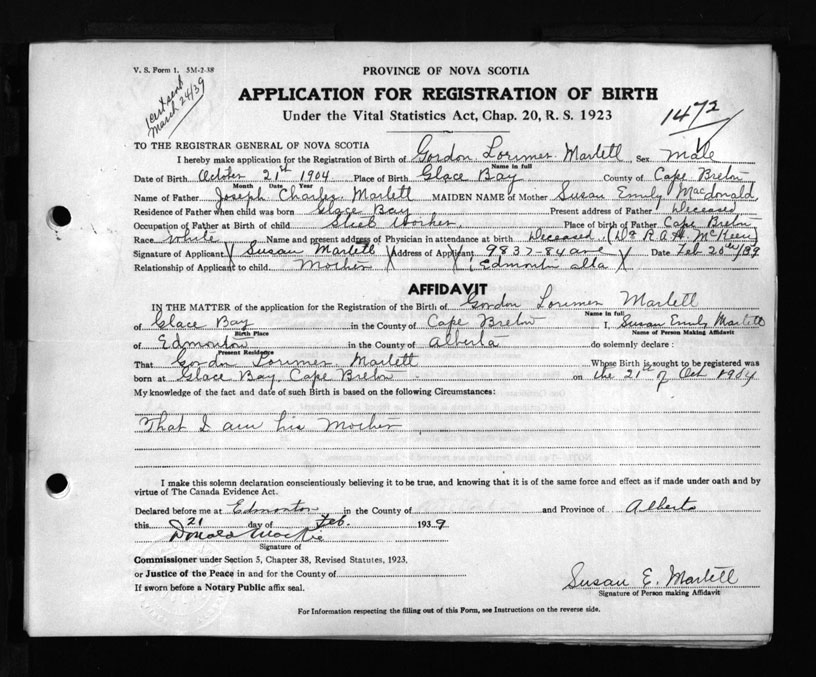 V. S. Form 1. 5M-2-38
PROVINCE OF NOVA SCOTIA
March 24/39
APPLICATION FOR REGISTRATION OF BIRTH
Under the Vital Statistics Act, Chap. 20, R. S. 1923
1472
TO THE REGISTRAR GENERAL OF NOVA SCOTIA
I hereby make application for the Registration of Birth of Gordon Lorimer Martell Sex Male
Name in full
Date of Birth October 21st 1904 Place of Birth Glace Bay County of Cape Breton
Month Date Year
Name of Father Joseph Charles Martell MAIDEN NAME of Mother Susan Emily Macdonald
Residence of Father when child was born Glace Bay Present address of Father Deceased
Occupation of Father at Birth of child Steel Worker Place of birth of Father Cape Breton
Race White Name and present address of Physician in attendance at birth Deceased (Dr R. A. H. McKeen)
Signature of Applicant X Susan Martell X Address of Applicant X 9837-84 ave X Date Feb 20th/39
Relationship of Applicant to child Mother Edmonton alta
AFFIDAVIT
IN THE MATTER of the application for the Registration of the Birth of Gordon Lorimer Martell
Name in full
of Glace Bay in the County of Cape Breton I, Susan Emily Martell
Birth Place Name of Person Making Affidavit
of Edmonton in the County of Alberta do solemnly declare :
Present Residence
That Gordon Lorimer Martell Whose Birth is sought to be registered was
born at Glace Bay Cape Breton on the 21st of Oct 1904
My knowledge of the fact and date of such Birth is based on the following Circumstances:
That I am his Mother
I make this solemn declaration conscientiously believing it to be true, and knowing that it is of the same force and effect as if made under oath and by
virtue of The Canada Evidence Act.
Declared before me at Edmonton in the County of and Province of Alberta
this 21 day of Feb. 1939
Donald MacKie
Signature of
Commissioner under Section 5, Chapter 38, Revised Statutes, 1923.
or Justice of the Peace in and for the County of
If sworn before a Notary Public affix seal.
Susan E. Martell
Signature of Person making Affidavit
For Information respecting the filling out of this Form, see Instructions on the reverse side.